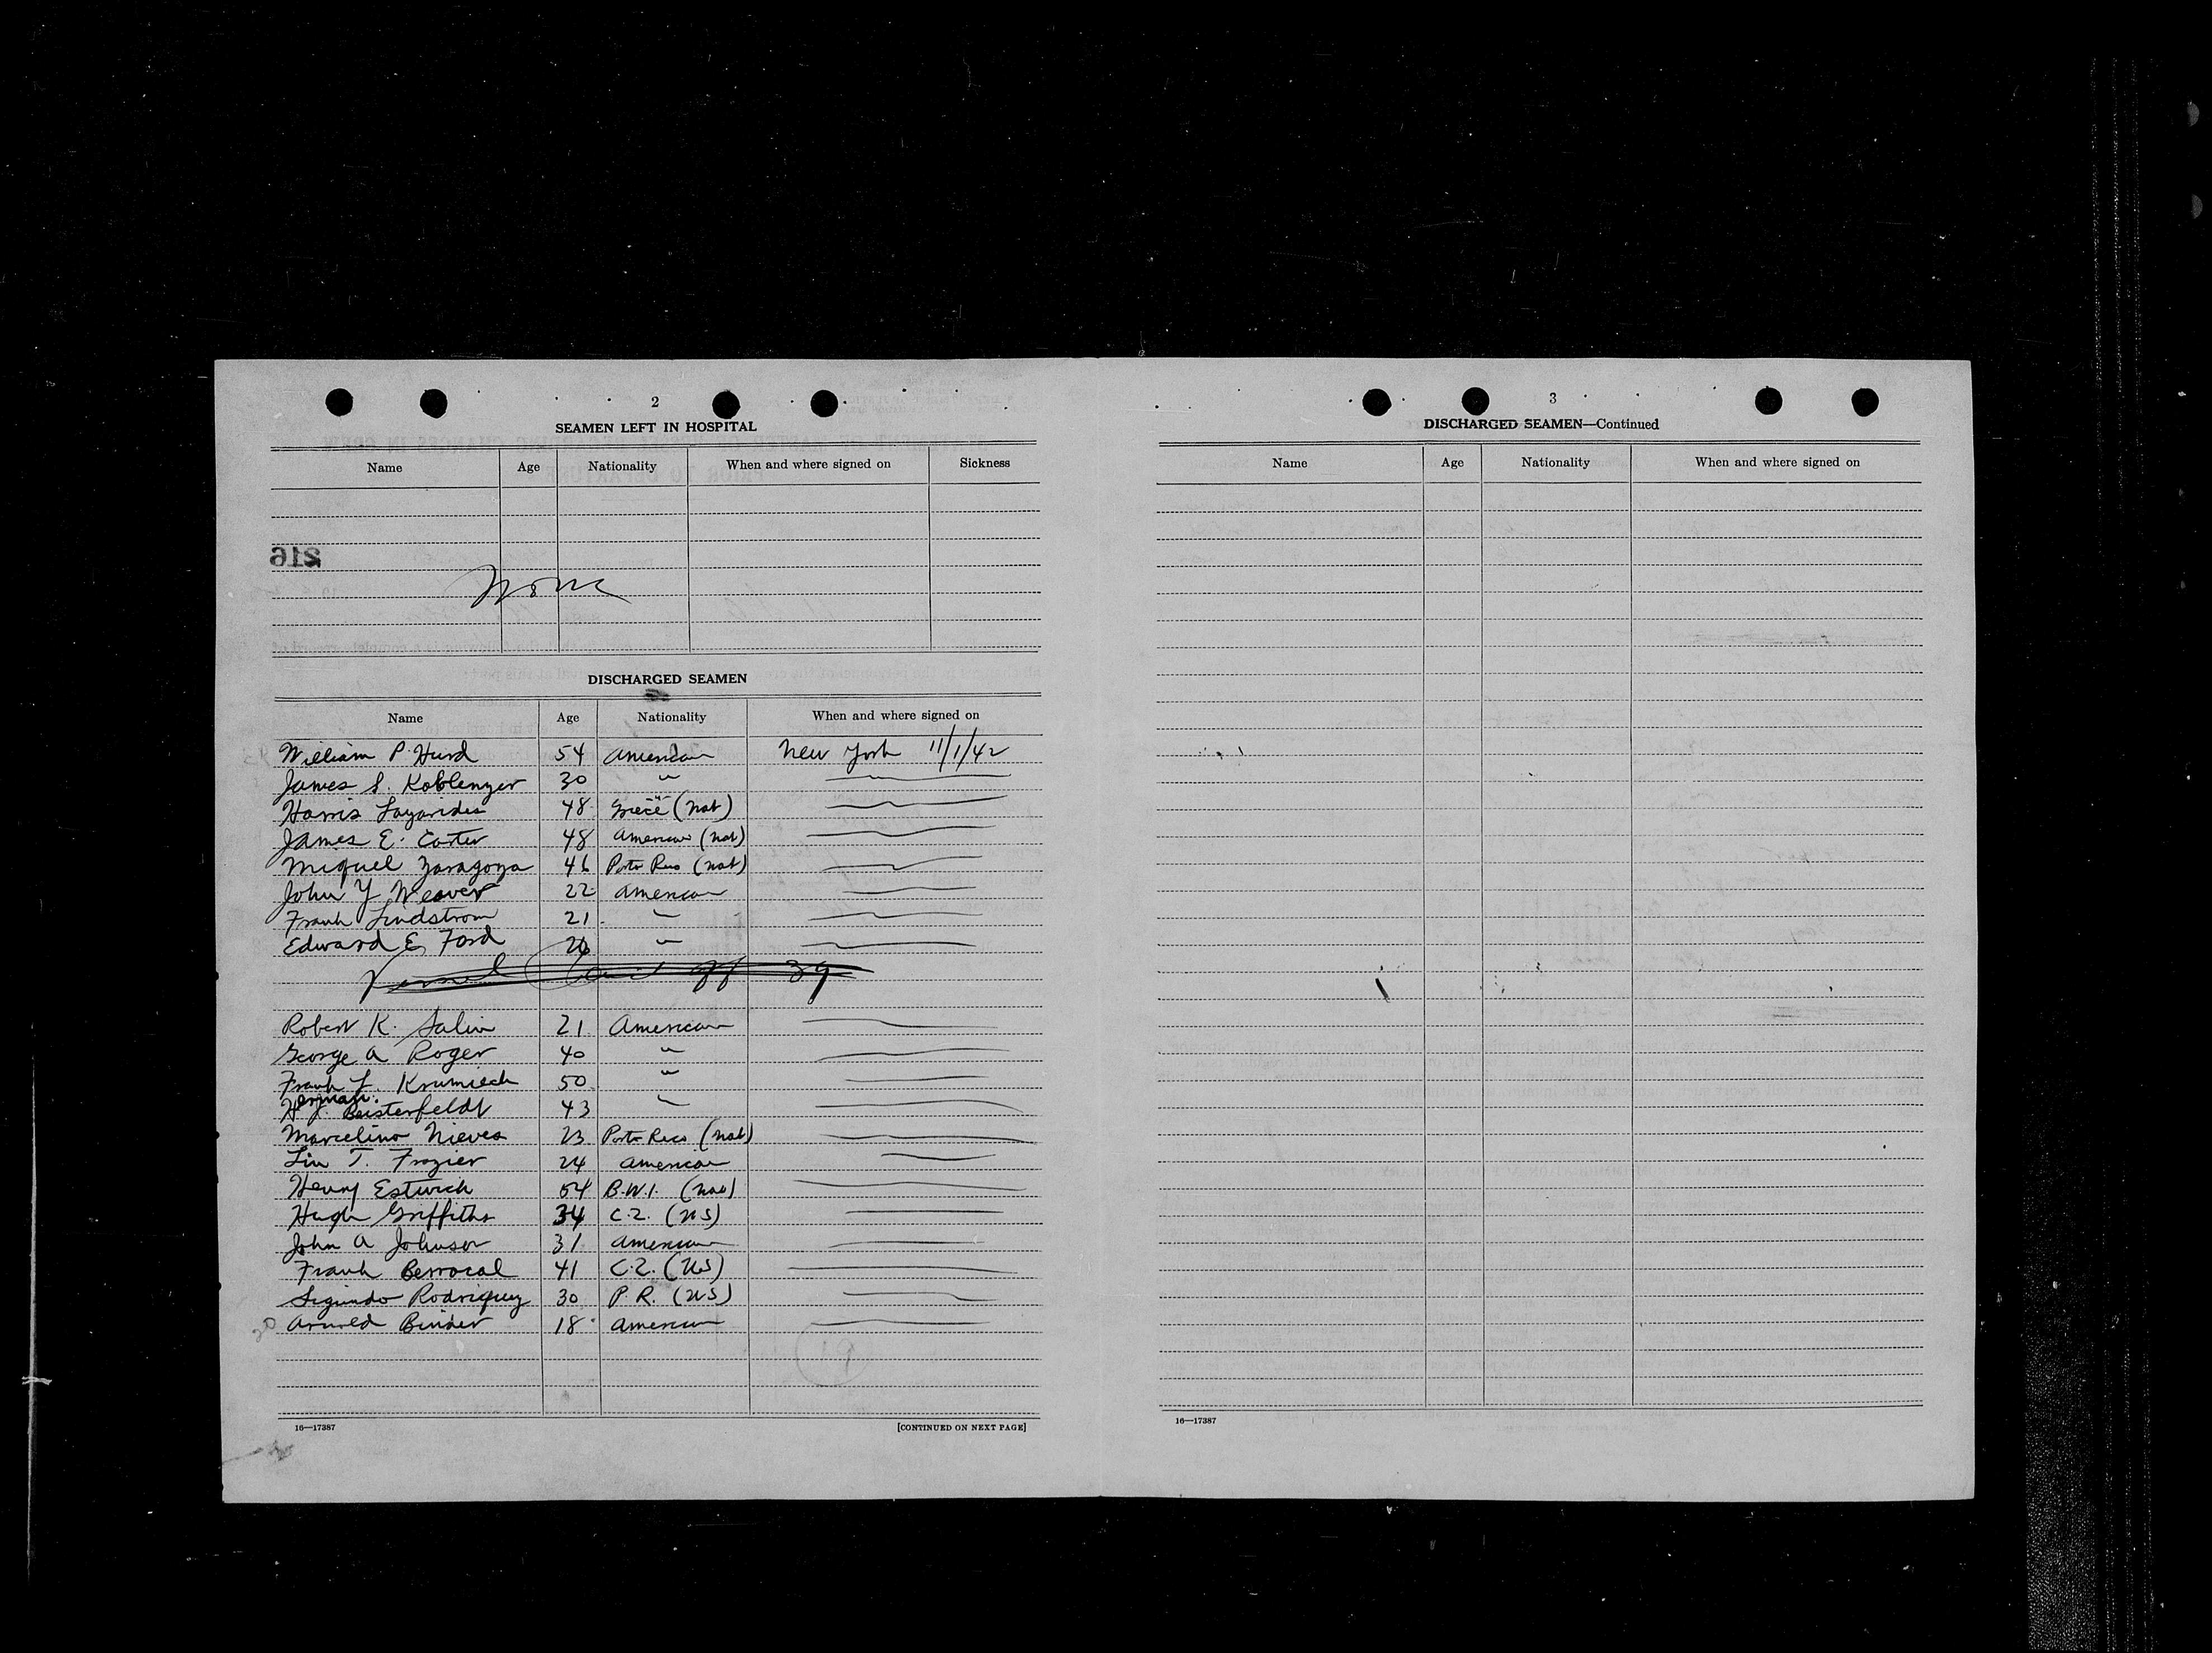 2
SEAMEN LEFT IN HOSPITAL
Name Age Nationality When and where signed on Sickness
216
None
DISCHARGED SEAMEN
Name Age Nationality When and where signed on
William P. Hurd 54 American New York 11/1/42
James S. Koblenzer 30 "
Harris Lazarides 48 Greece (Nat)
James E. Carter 48 American (Nat)
Miguel Zaragoza 46 Porto Rico (Nat)
John Y. Weaver 22 American
Frank Lindstrom 21 "
Edward E. Ford 26 "
39
Robert K. Salin 21 American
George A Roger 40 "
Frank L. Krumiech 50 "
Herman
H.J. Beisterfeldt 43 "
Marcelino Nieves 23 Porto Rico (Nat)
Lin T. Frazier 24 American
Henry Estwick 54 B.W.I. (Nat)
Hugh Griffiths 34 C.Z. (US)
John A Johnson 31 American
Frank Berrocal 41 C.Z. (US)
Segundo Rodriquez 30 P.R. (US)
20 Arnold Binder 18 American
16—17387 [CONTINUED ON NEXT PAGE]
3
DISCHARGED SEAMEN—Continued
Name Age Nationality When and where signed on
16—17387